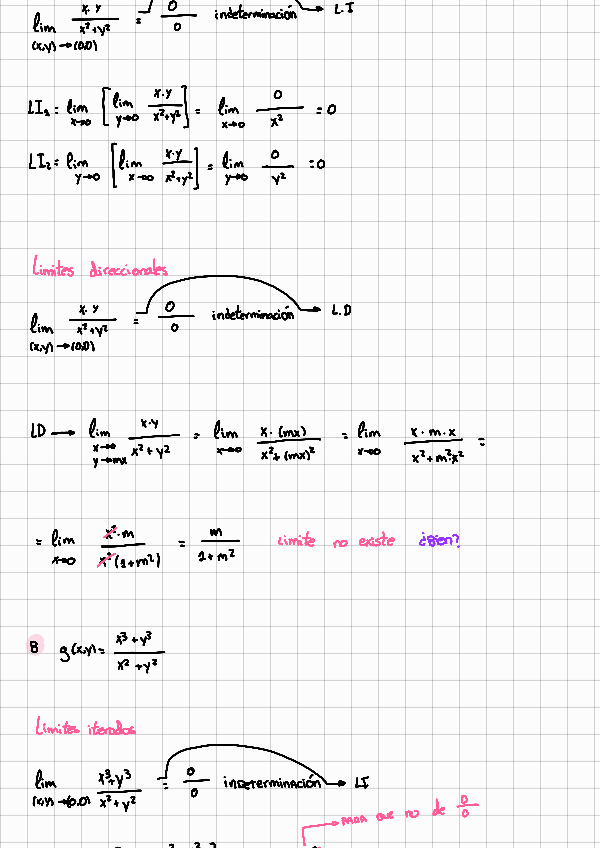 lim x·y / x²+y² = 0/0 indeterminación → LI
(x,y)→(0,0)
LI₁ = lim x→0 [lim y→0 x·y / x²+y²] = lim x→0 0 / x² = 0
LI₂ = lim y→0 [lim x→0 x·y / x²+y²] = lim y→0 0 / y² = 0
Limites direccionales
lim x·y / x²+y² = 0/0 indeterminación → L.D
(x,y)→(0,0)
LD → lim x→0 y→mx x·y / x²+y² = lim x→0 x·(mx) / x²+(mx)² = lim x→0 x·m·x / x²+m²x² =
= lim x→0 x²·m / x²(1+m²) = m / 1+m² Limite no existe ¿Bien?
B g(x,y) = x³+y³ / x²+y²
Limites iterados
lim (x,y)→(0,0) x³+y³ / x²+y² = 0/0 indeterminación → LI
→ para que no de 0/0